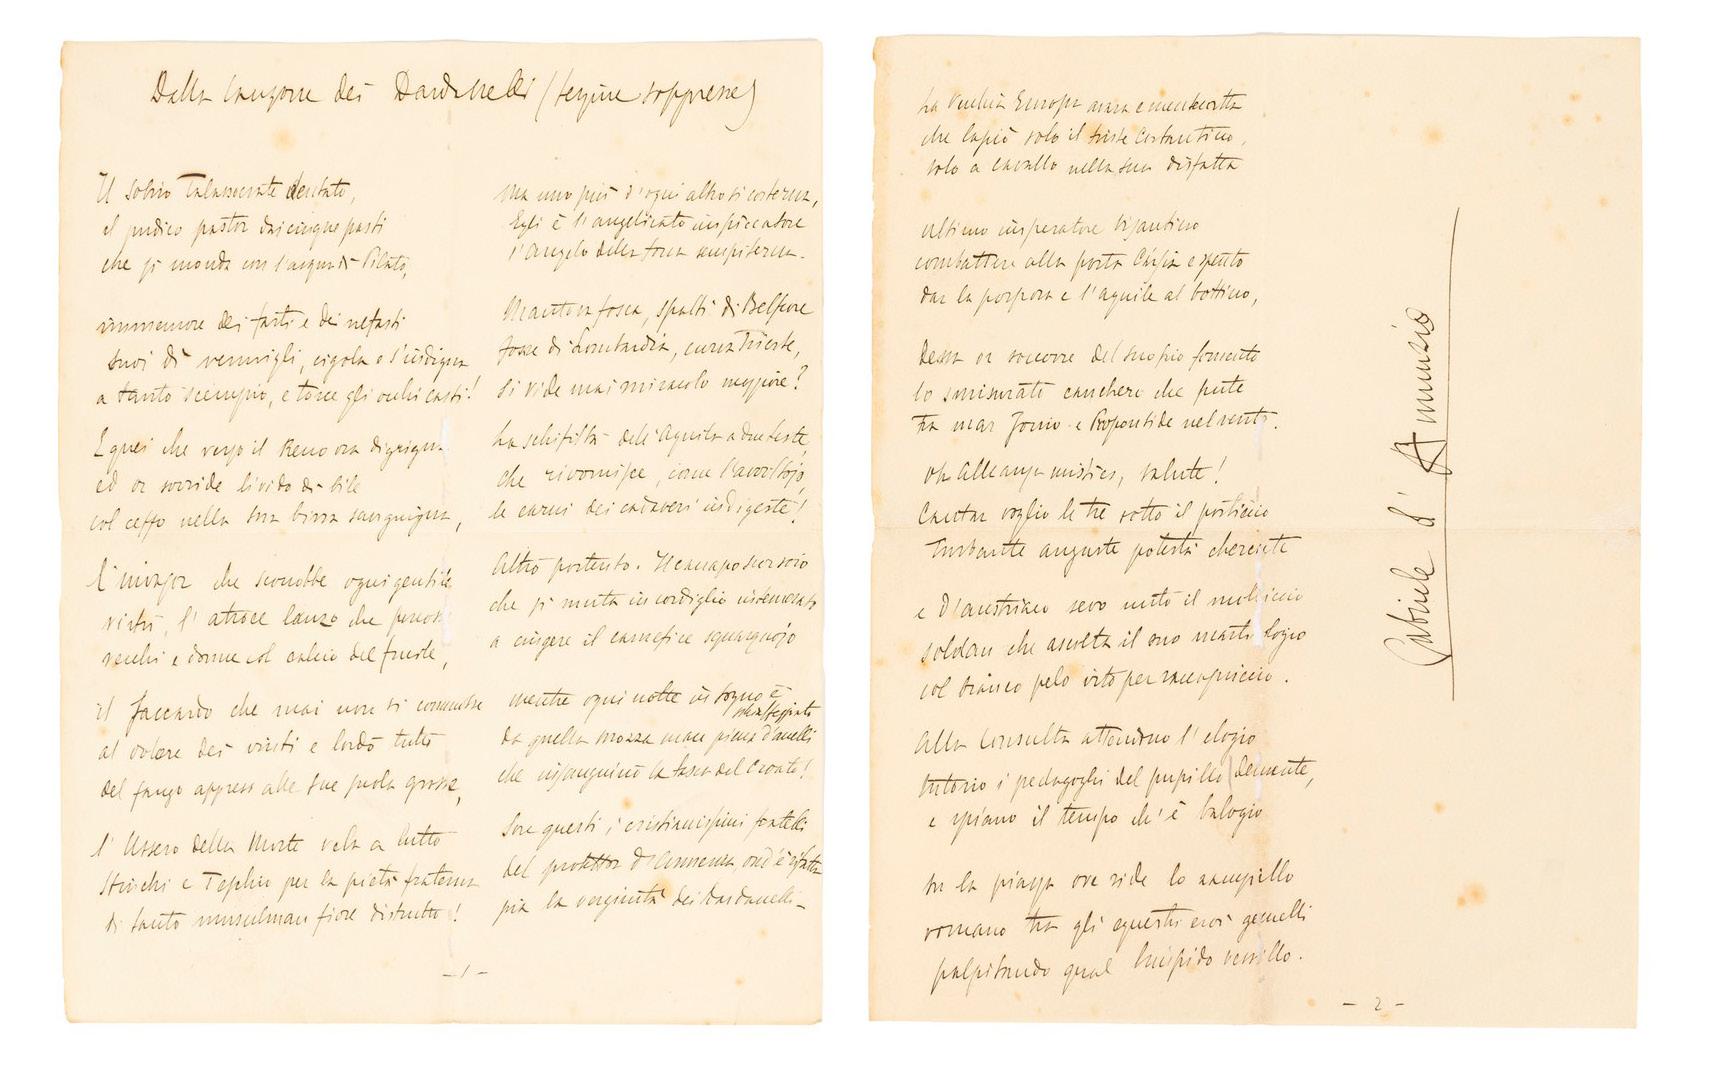 Dalla Canzone dei Dardanelli (terzine soppresse)
Il sobrio Talassocrate dentato,
il pudico pastor dai cinque pasti
che si monda con l'acqua di Pilato,
immemore dei fasti e dei nefasti
suoi dì vermigli, cigola e s'indigna
a tanto scempio, e torce gli occhi casti!
E quei che verso il Reno ora digrigna
ed or sorride livido di bile
col ceffo nella sua birra sanguigna,
l'invasor che sconobbe ogni gentile
virtù, l'atroce lanzo che percosse
vecchi e donne col calcio del fucile,
il saccardo che mai non si commosse
al dolore dei vinti e lordò tutto
del fango appreso alle sue suola grosse,
l'Ussero della Morte vela a lutto
e Teschio per la pietà fraterna
di tanto musulman fiore distrutto!
Ma uno più d'ogni altro si costerna,
Egli è l'angelicato impiccatore
l'Angelo della forca sempiterna.
Mantova fosca, spalti di Belfiore
fosse di Lombardia, curva Trieste,
si vide mai miracolo maggiore?
La schifiltà dell'Aquila a due teste,
che rivomisce, come l'avvoltojo,
le carni dei cadaveri indigeste!
Altro portento. Il canapo scorsoio
che si muta in cordiglio intemerato
a cingere il carnefice squarquojo
mentre ogni notte in sogno è
schiaffeggiato
da quella mozza man piena d'anelli
che insanguinò la tasca del Croato!
Son questi i cristianissimi fratelli
del protettor d'Armenia, ond'è rifatta
pia la verginità dei Dardanelli.
- 1 -
La Vecchia Europa avara e mentecatta
che lasciò solo il triste Costantino,
solo a cavallo nella sua disfatta
ultimo imperatore bizantino
combattere alla porta Carsia e spento
dar la porpora e l'aquile al bottino,
dessa or soccorre del suo pio fomento
lo smisurato canchero che pute
tra mar Jonio e Propontide nel vento.
Oh Alleanza mistica, salute!
Cantar voglio le tre sotto il posticcio
Turbante auguste potestà chercute
e d'austriaco sevo unto il molliccio
soldan che ascolta il suo martilogio
col bianco pelo irto per raccapriccio.
Alla Consulta attendono l'elogio
tutorio i pedagoghi del pupillo demente,
e spiano il tempo ch'è balogio
su la piazza ove ride lo zampillo
romano tra gli equestri eroi gemelli
palpitando qual vessillo.
Gabriele d'Annunzio
- 2 -